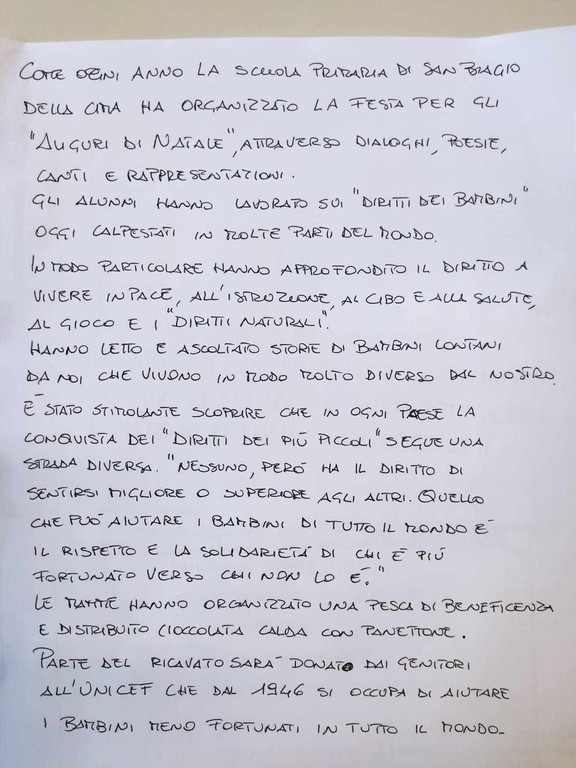 COME OGNI ANNO LA SCUOLA PRIMARIA DI SAN BIAGIO
DELLA CIMA HA ORGANIZZATO LA FESTA PER GLI
"AUGURI DI NATALE", ATTRAVERSO DIALOGHI, POESIE,
CANTI E RAPPRESENTAZIONI.
GLI ALUNNI HANNO LAVORATO SUI "DIRITTI DEI BAMBINI"
OGGI CALPESTATI IN MOLTE PARTI DEL MONDO.
IN MODO PARTICOLARE HANNO APPROFONDITO IL DIRITTO A
VIVERE IN PACE, ALL'ISTRUZIONE, AL CIBO E ALLA SALUTE,
AL GIOCO E I "DIRITTI NATURALI".
HANNO LETTO E ASCOLTATO STORIE DI BAMBINI LONTANI
DA NOI CHE VIVONO IN MODO MOLTO DIVERSO DAL NOSTRO.
È STATO STIMOLANTE SCOPRIRE CHE IN OGNI PAESE LA
CONQUISTA DEI "DIRITTI DEI PIÙ PICCOLI" SEGUE UNA
STRADA DIVERSA. "NESSUNO, PERÒ HA IL DIRITTO DI
SENTIRSI MIGLIORE O SUPERIORE AGLI ALTRI. QUELLO
CHE PUÒ AIUTARE I BAMBINI DI TUTTO IL MONDO È
IL RISPETTO E LA SOLIDARIETÀ DI CHI È PIÙ
FORTUNATO VERSO CHI NON LO È."
LE MAMME HANNO ORGANIZZATO UNA PESCA DI BENEFICENZA
E DISTRIBUITO CIOCCOLATA CALDA CON PANETTONE.
PARTE DEL RICAVATO SARÀ DONATO DAI GENITORI
ALL'UNICEF CHE DAL 1946 SI OCCUPA DI AIUTARE
I BAMBINI MENO FORTUNATI IN TUTTO IL MONDO.